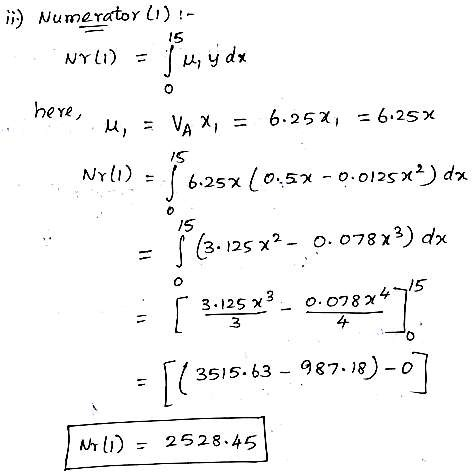 ii) Numerator (1) :-
Nr(1) = ∫₀¹⁵ μ₁ y dx
here, μ₁ = V_A x₁ = 6.25x₁ = 6.25x
Nr(1) = ∫₀¹⁵ 6.25x (0.5x - 0.0125x²) dx
= ∫₀¹⁵ (3.125x² - 0.078x³) dx
= [ 3.125x³/3 - 0.078x⁴/4 ]₀¹⁵
= [(3515.63 - 987.18) - 0]
Nr(1) = 2528.45